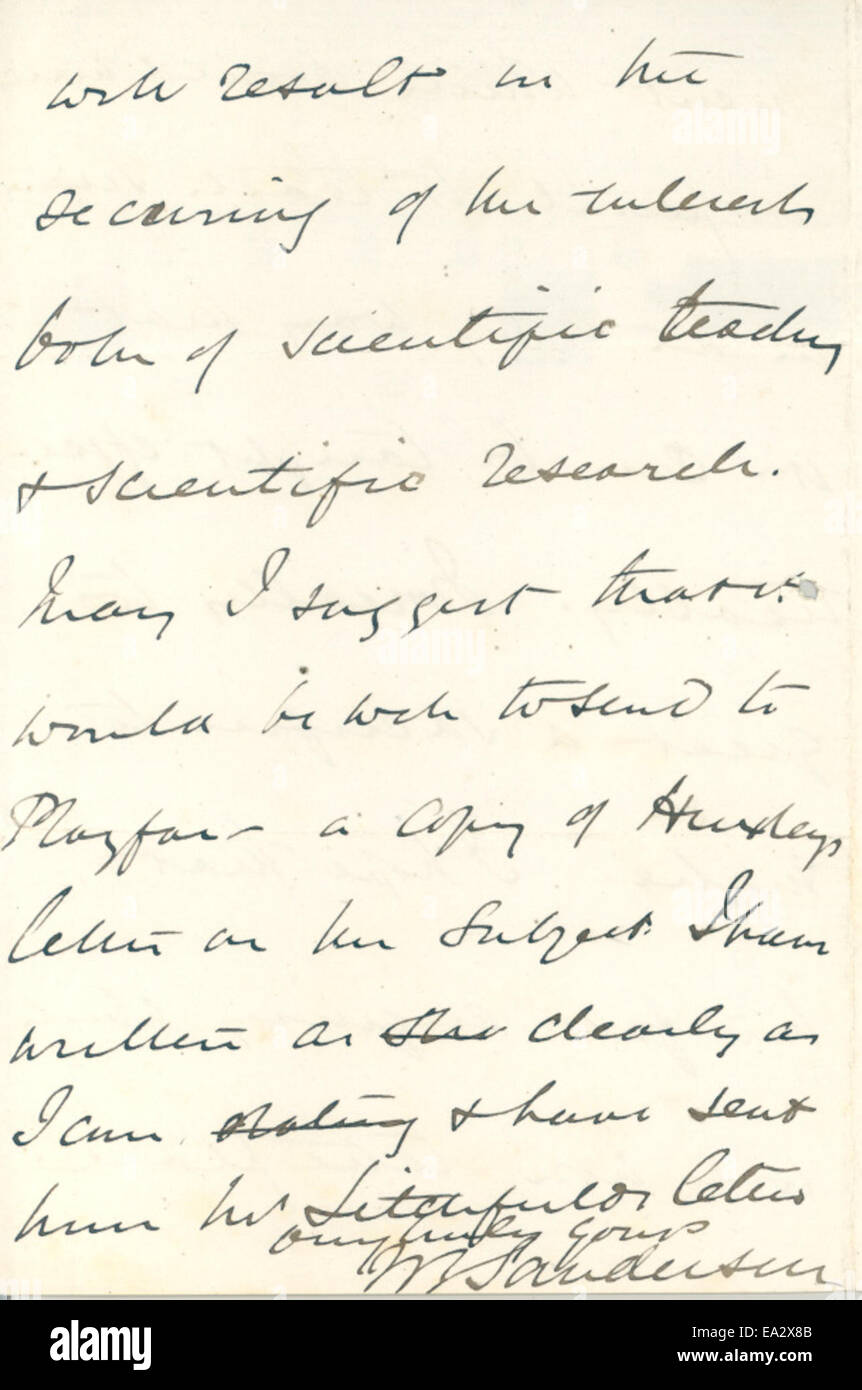 will result in the
securing of the interests
both of scientific teaching
& scientific research.
May I suggest that it
would be well to send to
Playfair a copy of Huxleys
letter on the subject. I have
written as clearly as
I can stating & have sent
him Mr Litchfield's letter
very truly yours
J B Sanderson
alamy
alamy
alamy
alamy
Image ID: EA2X8B
www.alamy.com